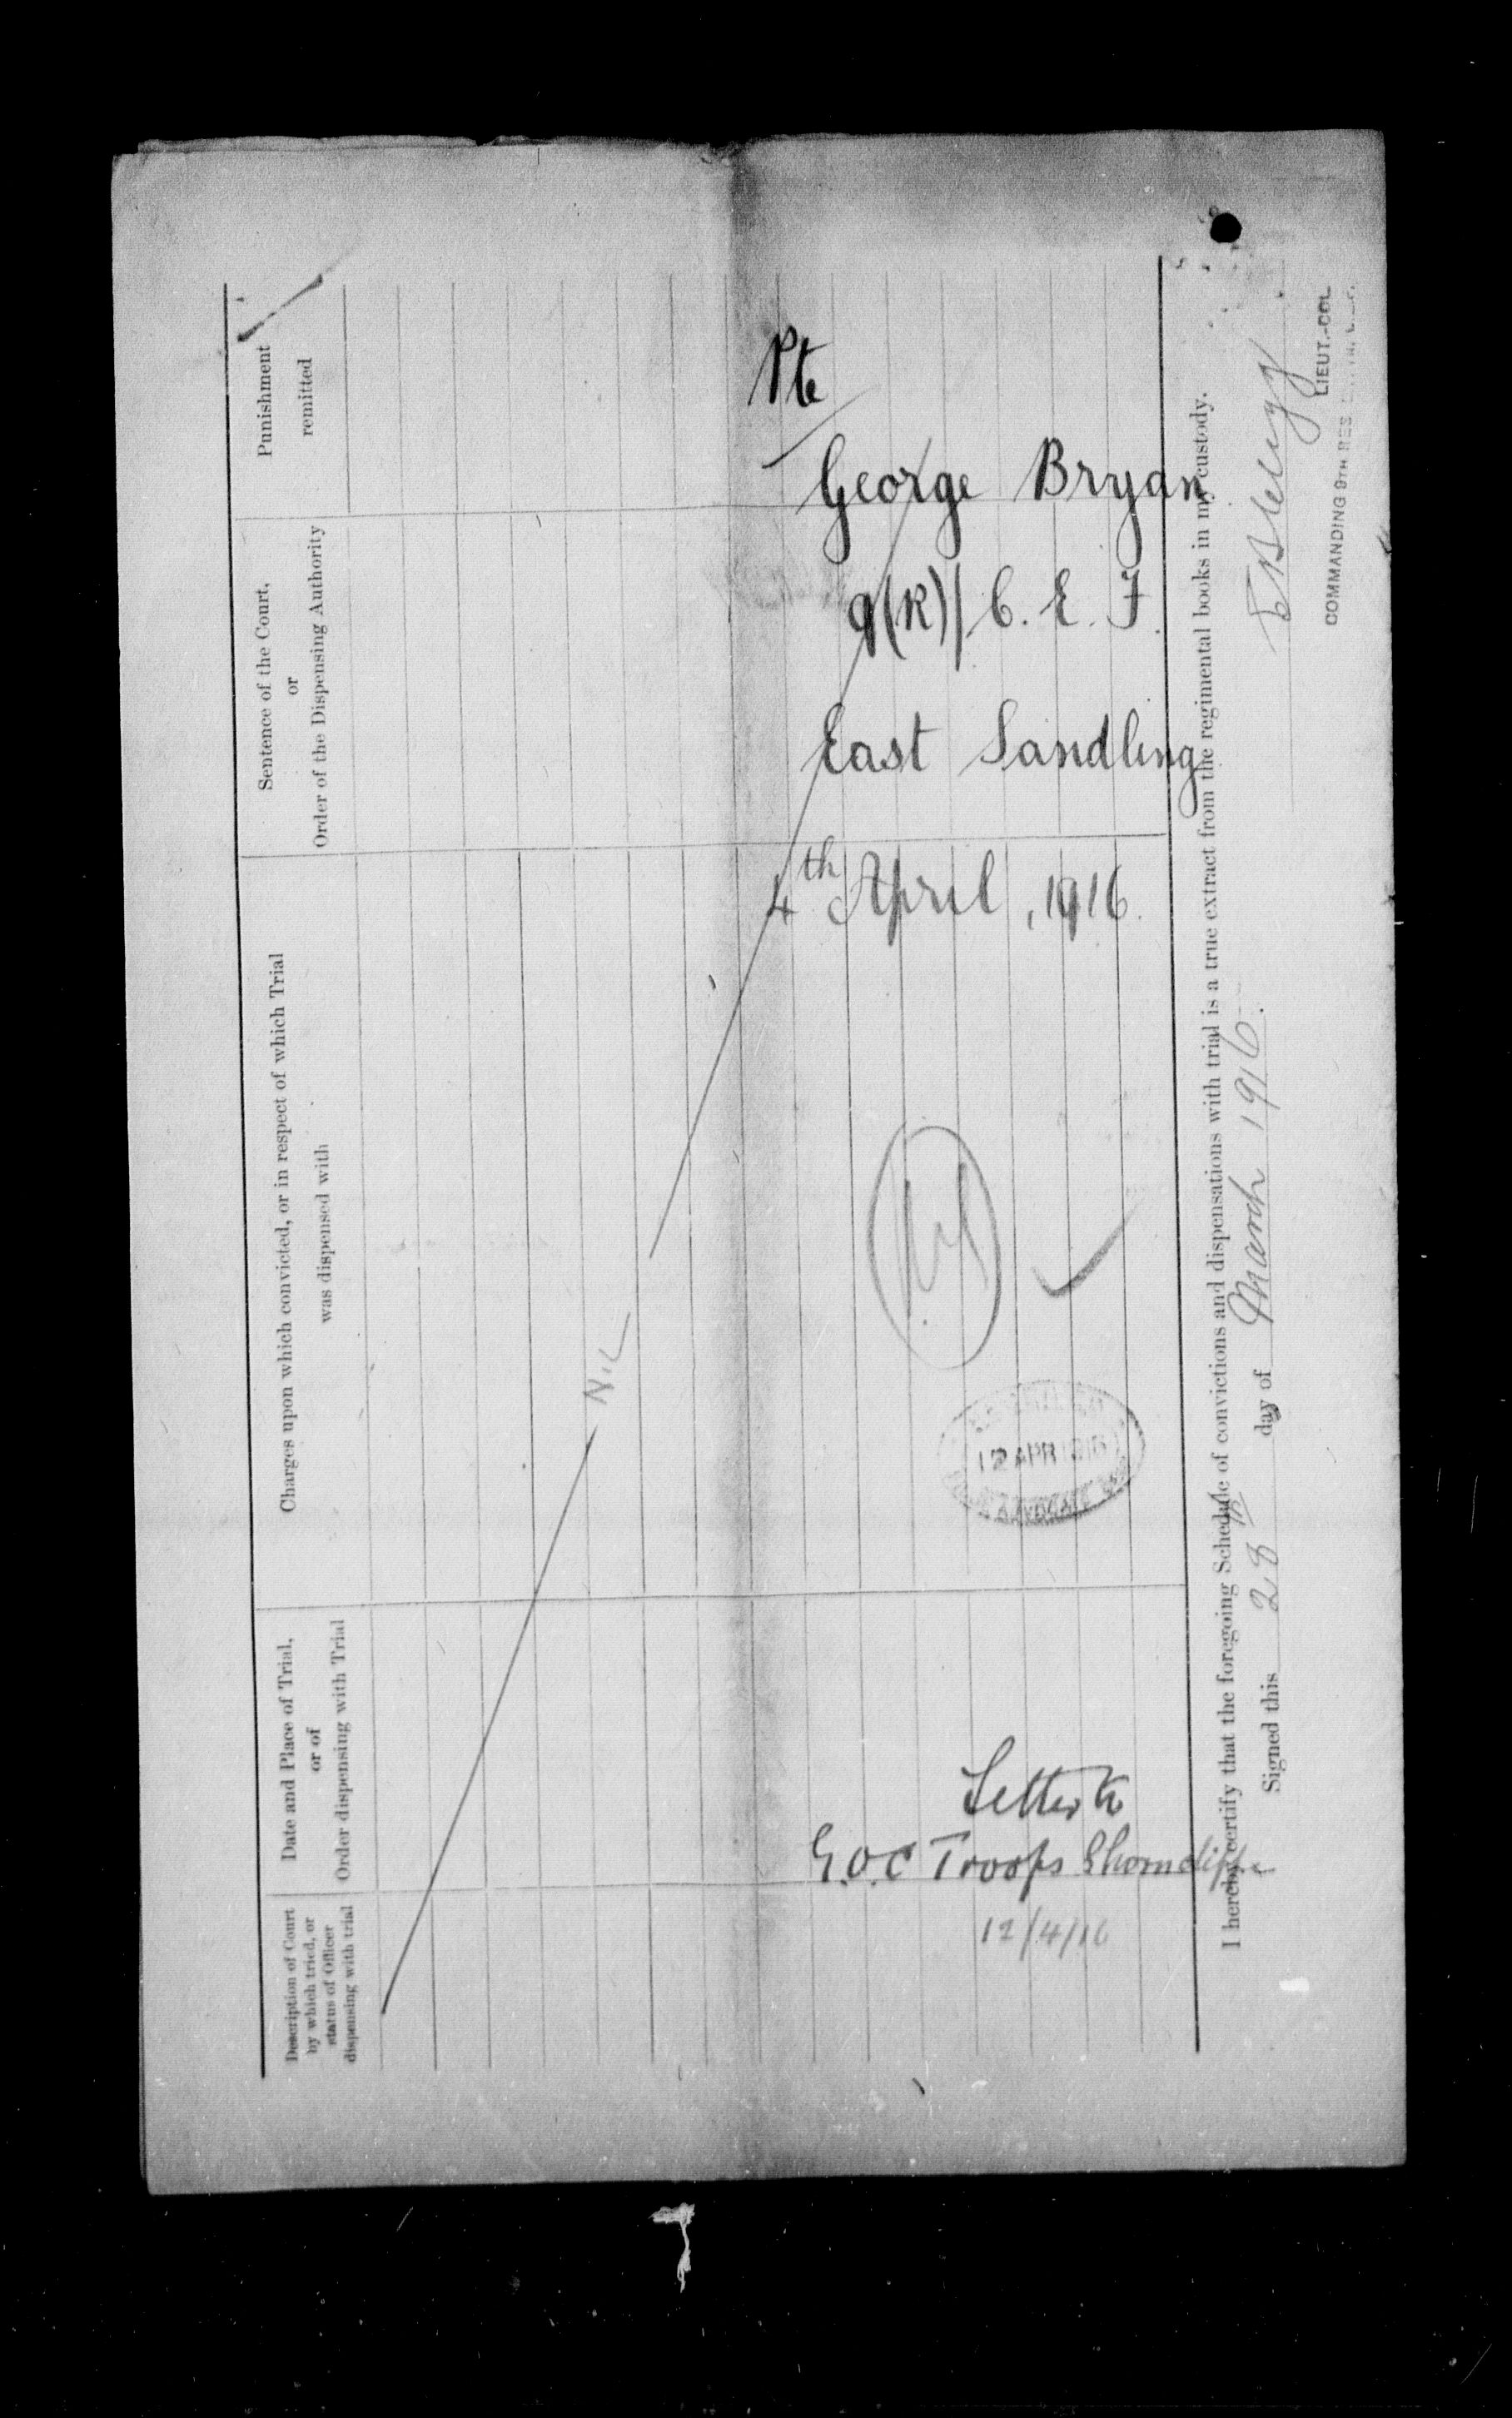 Pte
George Bryan
9(R)/C.E.F.
East Sandling
4th April, 1916.
12 APR 1916
ADVOCATE
Letter to
G.O.C Troops Shorncliffe
12/4/16
Description of Court
by which tried, or
status of Officer
dispensing with trial
Date and Place of Trial,
or of
Order dispensing with Trial
Charges upon which convicted, or in respect of which Trial
was dispensed with
Sentence of the Court,
or
Order of the Dispensing Authority
Punishment
remitted
NIL
I hereby certify that the foregoing Schedule of convictions and dispensations with trial is a true extract from the regimental books in my custody.
Signed this 28th day of March 1916.
LIEUT.-COL.
COMMANDING 9TH RES.